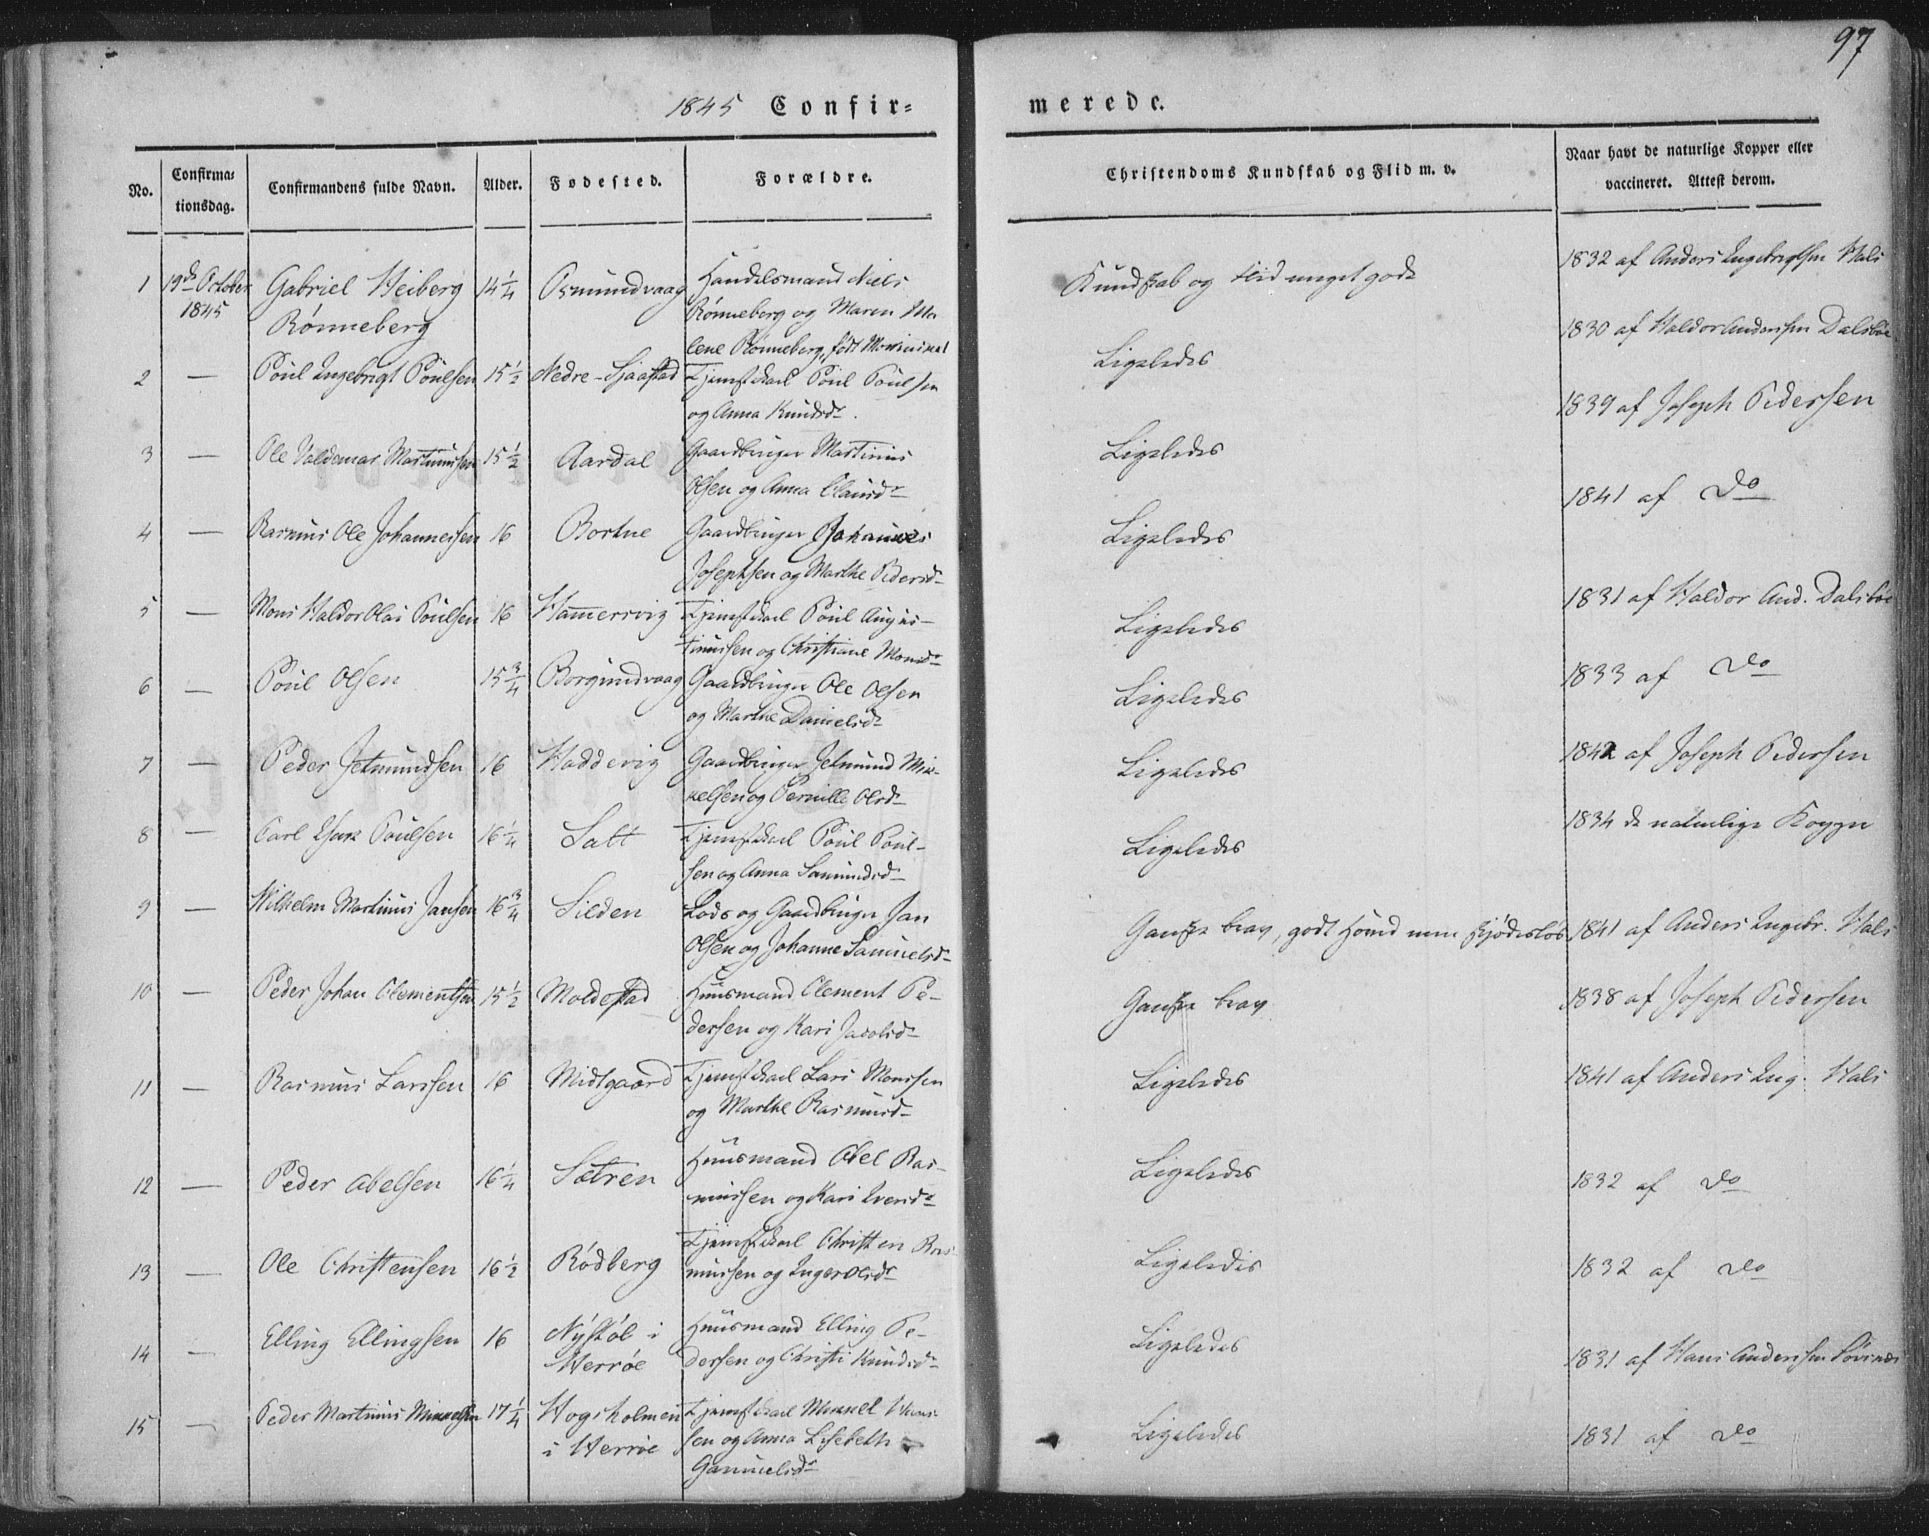 97
1845 Confir=
merede.
No.
Confirma-
tionsdag.
Confirmandens fulde Navn.
Alder.
Fødested.
Forældre.
Christendoms Kundskab og Flid m. v.
Naar havt de naturlige Kopper eller
vaccineret. Attest derom.
1 19de October Gabriel Heiberg 14¼ Osmundvaag Handelsmand Niels
1845 Rønneberg Rønneberg og Maren Ma
lene Rønneberg, født
Kundskab og Flid meget gode 1832 af Anders Ingebrigtsen Hals
2 — Poul Ingebrigt Poulsen 15½ Nedre-Sjaastad Tjenestkarl Poul Poulsen
og Anna Knudsdr.
Ligeledes 1830 af Haldor Anderssen Dalsbøe
3 — Ole Valdemar Martinussen 15½ Aardal Gaardbruger Martinus
Olsen og Anna Clausdr
Ligeledes 1839 af Joseph Pedersen
4 — Rasmus Ole Johannessen 16 Bortne Gaardbruger Johannes
Josephsen og Marthe Pedersdr
Ligeledes 1841 af Do
5 — Mons Haldor Olai Poulsen 16 Hammersvig Tjenestkarl Poul Augus-
tinussen og Christiane Monsdr
Ligeledes 1831 af Haldor And. Dalsbøe
6 — Poul Olsen 15¾ Borgundvaag Gaardbruger Ole Olsen
og Marthe Danielsdr
Ligeledes 1833 af Do
7 — Peder Jetmundsen 16 Haddevig Gaardbruger Jetmund Mik-
kelsen og Pernille Olsdr
Ligeledes 1842 af Joseph Pedersen
8 — Carl Poulsen 16¼ Salt Tjenestkarl Poul Poul-
sen og Anna Samundsdr
Ligeledes 1834 de naturlige Kopper
9 — Wilhelm Martinus Jansen 16¾ Silden Lods og Gaardbruger Jan
Olsen og Johanne Samuelsdr
Ganske brav, godt men skjødesløs 1841 af Anders Ingebr. Hals
10 — Peder Johan Clementsen 15½ Moldestad Huusmand Clement Pe-
dersen og Kari Jacobsdr
Ganske brav 1838 af Joseph Pedersen
11 — Rasmus Larssen 16 Midtgaard Tjenestkarl Lars Monssen
og Marthe Rasmusdr
Ligeledes 1841 af Anders Ing. Hals
12 — Peder Abelsen 16¼ Sætren Huusmand Abel Ras-
mussen og Kari Iversdr
Ligeledes 1832 af Do
13 — Ole Christensen 16½ Rødberg Tjenestkarl Christen Ras-
mussen og Inger Olsdr
Ligeledes 1832 af Do
14 — Elling Ellingsen 16 Nystøl i Huusmand Elling Pe-
Herrøe dersen og Christi Knudsdr
Ligeledes 1831 af Hans Anderssen
15 — Peder Martinus Mikkelsen 17¼ Hogsholmen Tjenestkarl Mikkel Hans
i Herrøe sen og Anna Lisebeth
Gammelsdr
Ligeledes 1831 af Do